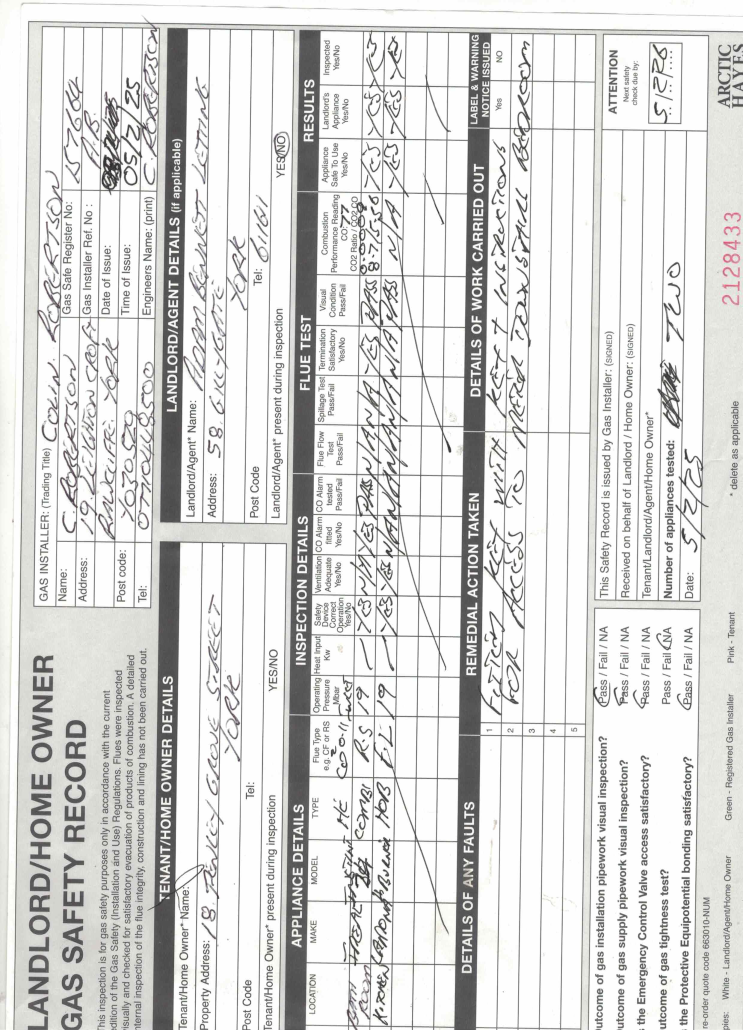 LANDLORD/HOME OWNER
GAS SAFETY RECORD
This inspection is for gas safety purposes only in accordance with the current
dition of the Gas Safety (Installation and Use) Regulations. Flues were inspected
isually and checked for satisfactory evacuation of products of combustion. A detailed
nternal inspection of the flue integrity, construction and lining has not been carried out.
GAS INSTALLER: (Trading Title) COLIN ROBERTSON
Name: C. ROBERTSON
Gas Safe Register No:
Address: 19
Gas Installer Ref. No :
YORK
Date of Issue:
Post code: YO30
Time of Issue: 05/2/25
Tel:
Engineers Name: (print) C. ROBERTSON
TENANT/HOME OWNER DETAILS
Tenant/Home Owner* Name:
Property Address: 18 GROVE STREET
YORK
Post Code
Tel:
Tenant/Home Owner* present during inspection YES/NO
LANDLORD/AGENT DETAILS (if applicable)
Landlord/Agent* Name: ADAM BENNETT LETTING
Address: 58 GILLYGATE
YORK
Post Code
Tel:
Landlord/Agent* present during inspection YES/NO
APPLIANCE DETAILS
INSPECTION DETAILS
FLUE TEST
RESULTS
LOCATION
MAKE
MODEL
TYPE
Flue Type e.g. CF or RS
Operating Pressure Mbar
Heat Input Kw
Safety Device Correct Operation Yes/No
Ventilation Adequate Yes/No
CO Alarm fitted Yes/No
CO Alarm tested Pass/Fail
Flue Flow Test Pass/Fail
Spillage Test Pass/Fail
Termination Satisfactory Yes/No
Visual Condition Pass/Fail
Combustion Performance Reading CO: CO2 Ratio / CO2 CO
Appliance Safe To Use Yes/No
Landlord's Appliance Yes/No
Inspected Yes/No
ROOM COMBI RS 19 YES N/A YES PASS N/A N/A YES PASS YES YES YES
KITCHEN HOB FL 19 YES YES N/A N/A N/A N/A N/A PASS N/A YES YES YES
DETAILS OF ANY FAULTS
REMEDIAL ACTION TAKEN
DETAILS OF WORK CARRIED OUT
LABEL & WARNING NOTICE ISSUED
Yes NO
1 KEY WITH KEY + INSTRUCTIONS
2 FOR ACCESS TO METER DOWNSTAIRS BEDROOM
3
4
5
utcome of gas installation pipework visual inspection? Pass / Fail / NA
utcome of gas supply pipework visual inspection? Pass / Fail / NA
the Emergency Control Valve access satisfactory? Pass / Fail / NA
utcome of gas tightness test? Pass / Fail / NA
the Protective Equipotential bonding satisfactory? Pass / Fail / NA
This Safety Record is issued by Gas Installer: (SIGNED)
Received on behalf of Landlord / Home Owner: (SIGNED)
Tenant/Landlord/Agent/Home Owner*
Number of appliances tested: TWO
Date: 5/2/25
ATTENTION
Next safety
check due by:
5/2/26
re-order quote code 663010-NUM
pies: White - Landlord/Agent/Home Owner
Green - Registered Gas Installer
Pink - Tenant
* delete as applicable
2128433
ARCTIC
HAYES